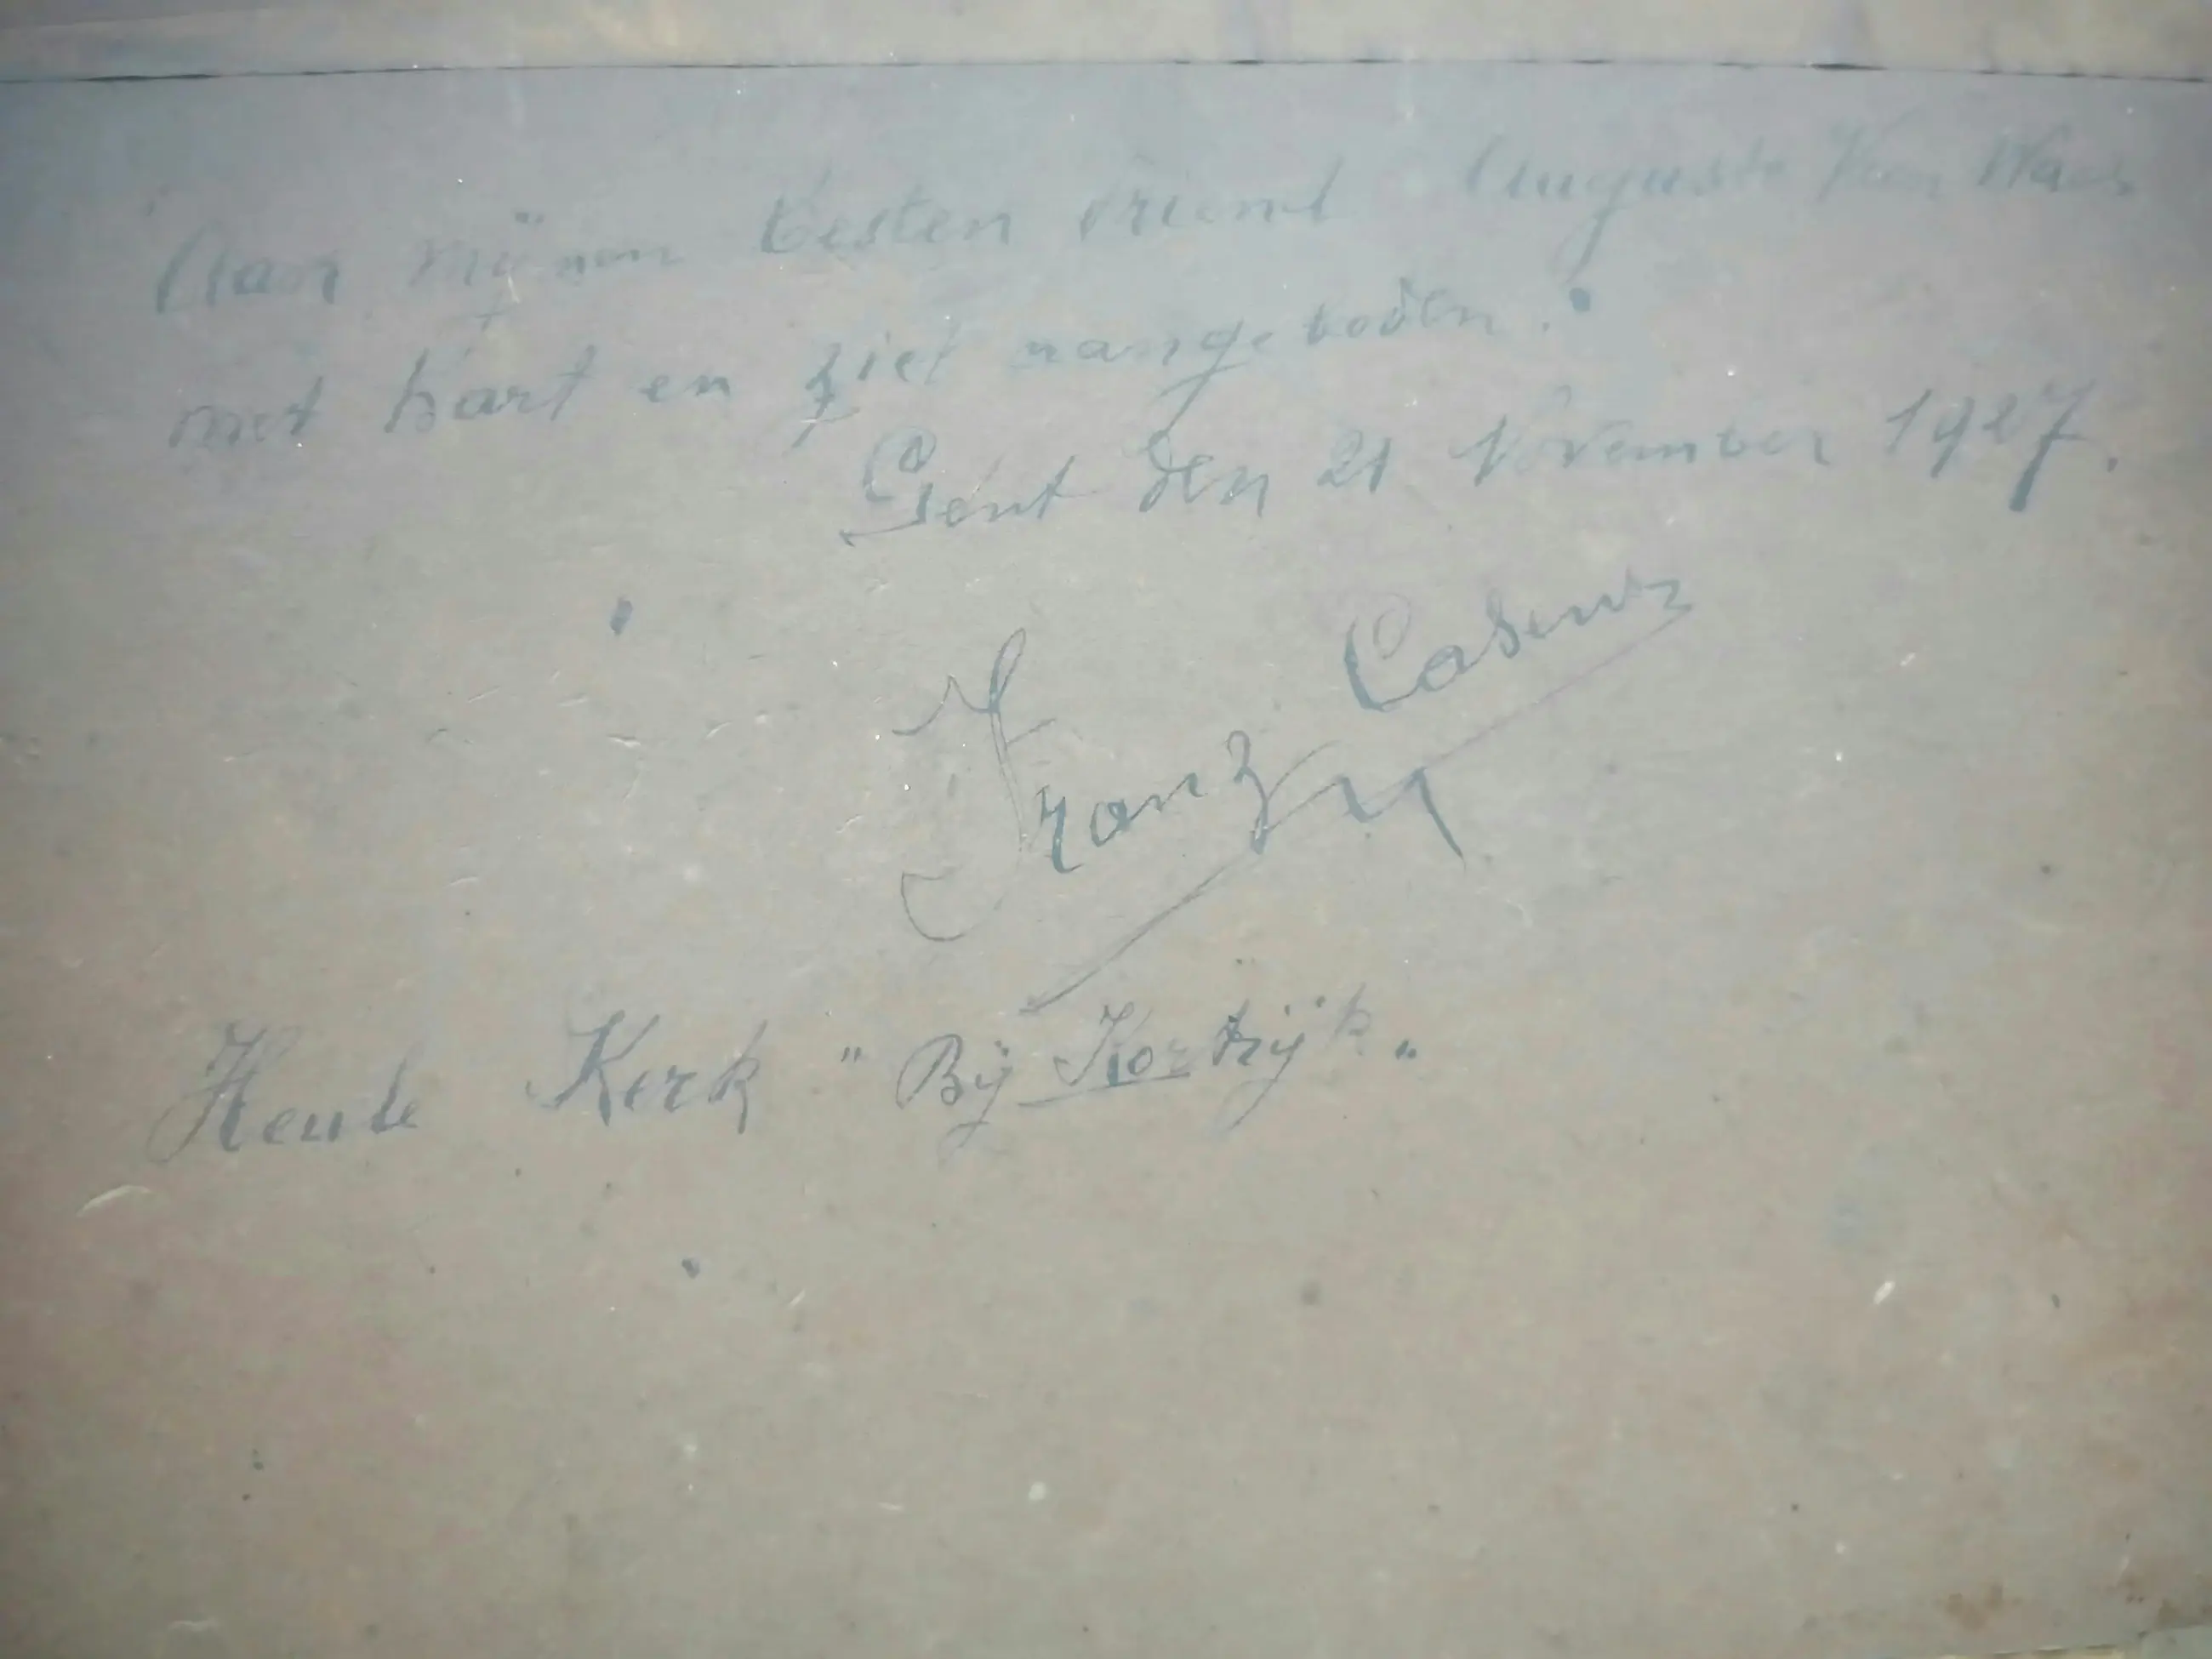 Aan mijnen besten vriend Auguste Van Waes
met hart en ziel aangeboden.
Gent den 21 November 1927.
Franz
Heule Kerk "Bij Kortrijk"